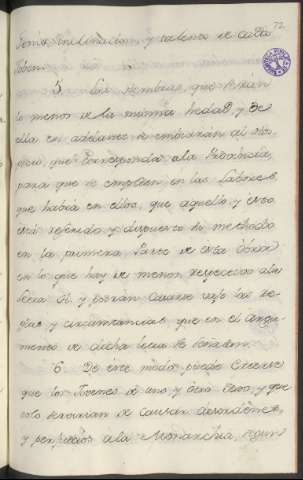 72
Genio, inclinacion, y talento de cada
Joben.
5. Las Hembras, que seràn
lo menos de la misma hedad, y de
ella en adelante se embiaràn al Hos-
picio que corresponda à la Probincia,
para que se empleen en las Labores,
que habrà en ellos, que aquello, y esto
està referido, y dispuesto su methodo
en la primera Parte de esta Obra
en lo que hay de menos respectivo à la
letra y bajo las re-
glas y circunstancias, que en el Argu-
mento de dicha letra se
6. De este modo, puede creerse
que los Jovenes de uno, y otro Sexo, y que
solo servirian de causar desordenes,
y perjuicios à la Monarchia, segun